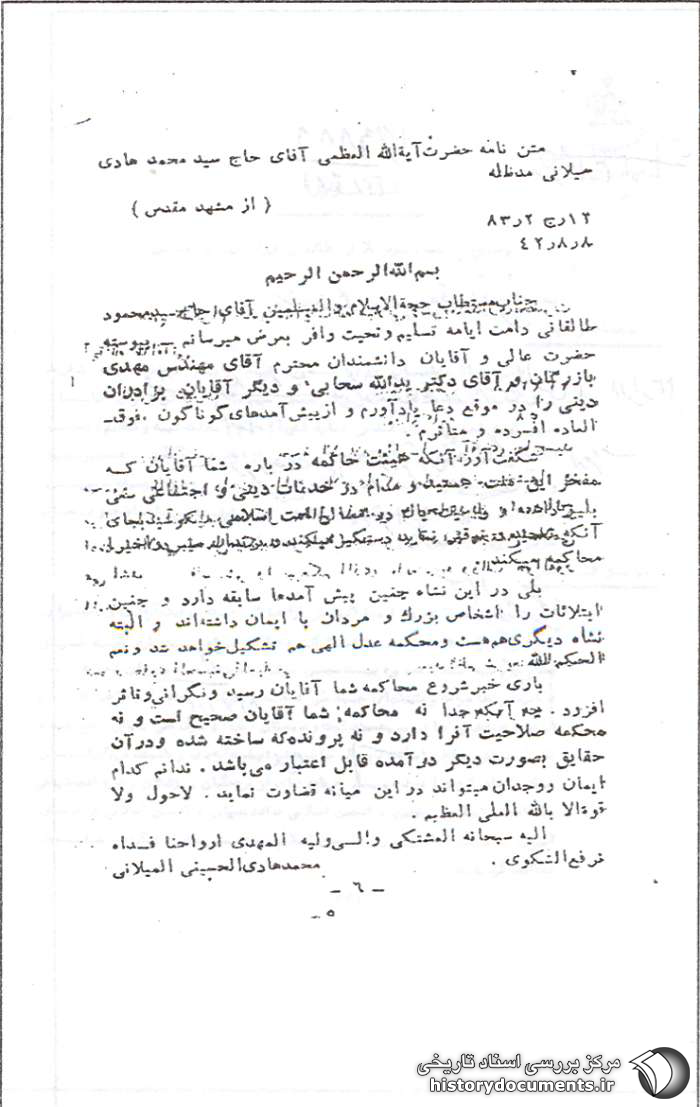 متن نامه حضرت آیة الله العظمی آقای حاج سید محمد هادی
میلانی مدظله
( از مشهد مقدس )
۱۲ رج ۲ ر ۸۳
۸ ر ۸ ر ۴۲
بسم الله الرحمن الرحیم
جناب مستطاب حجة الاسلام والمسلمین آقای حاج سید محمود
طالقانی دامت ایامه تسلیم و تحیت وافر بعرض میرسانم پیوسته
حضرت عالی و آقایان دانشمندان محترم آقای مهندس مهدی
بازرگان و آقای دکتر یدالله سحابی و دیگر آقایان برادران
دینی را در موقع دعا یادآورم و از پیش آمدهای گوناگون . فوق
العاده افسرده و متاثرم .
شگفت آور آنکه هیئت حاکمه در باره شما آقایان که
مفخر این ملت هستید و مدام در خدمات دینی و اجتماعی سعی
محاکمه میکنند .
بلی در این نشاه چنین پیش آمدها سابقه دارد و چنین
ابتلائات را اشخاص بزرگ و مردان با ایمان داشته‌اند و البته
نشاه دیگری هم هست و محکمه عدل الهی هم تشکیل خواهد شد و نعم
الحکم الله
باری خبر شروع محاکمه شما آقایان رسید و نگرانی و تاثر
افزود . چه آنکه جدا نه محاکمه شما آقایان صحیح است و نه
محکمه صلاحیت آنرا دارد و نه پرونده که ساخته شده و در آن
حقایق بصورت دیگر در آمده قابل اعتبار می باشد . ندانم کدام
ایمان و وجدان میتواند در این میانه قضاوت نماید . لاحول ولا
قوة الا بالله العلی العظیم .
الیه سبحانه المشتکی والی ولیه المهدی ارواحنا فداه
نرفع الشکوی . محمد هادی الحسینی المیلانی
- ۶ -
۵
مرکز بررسی اسناد تاریخی
historydocuments.ir